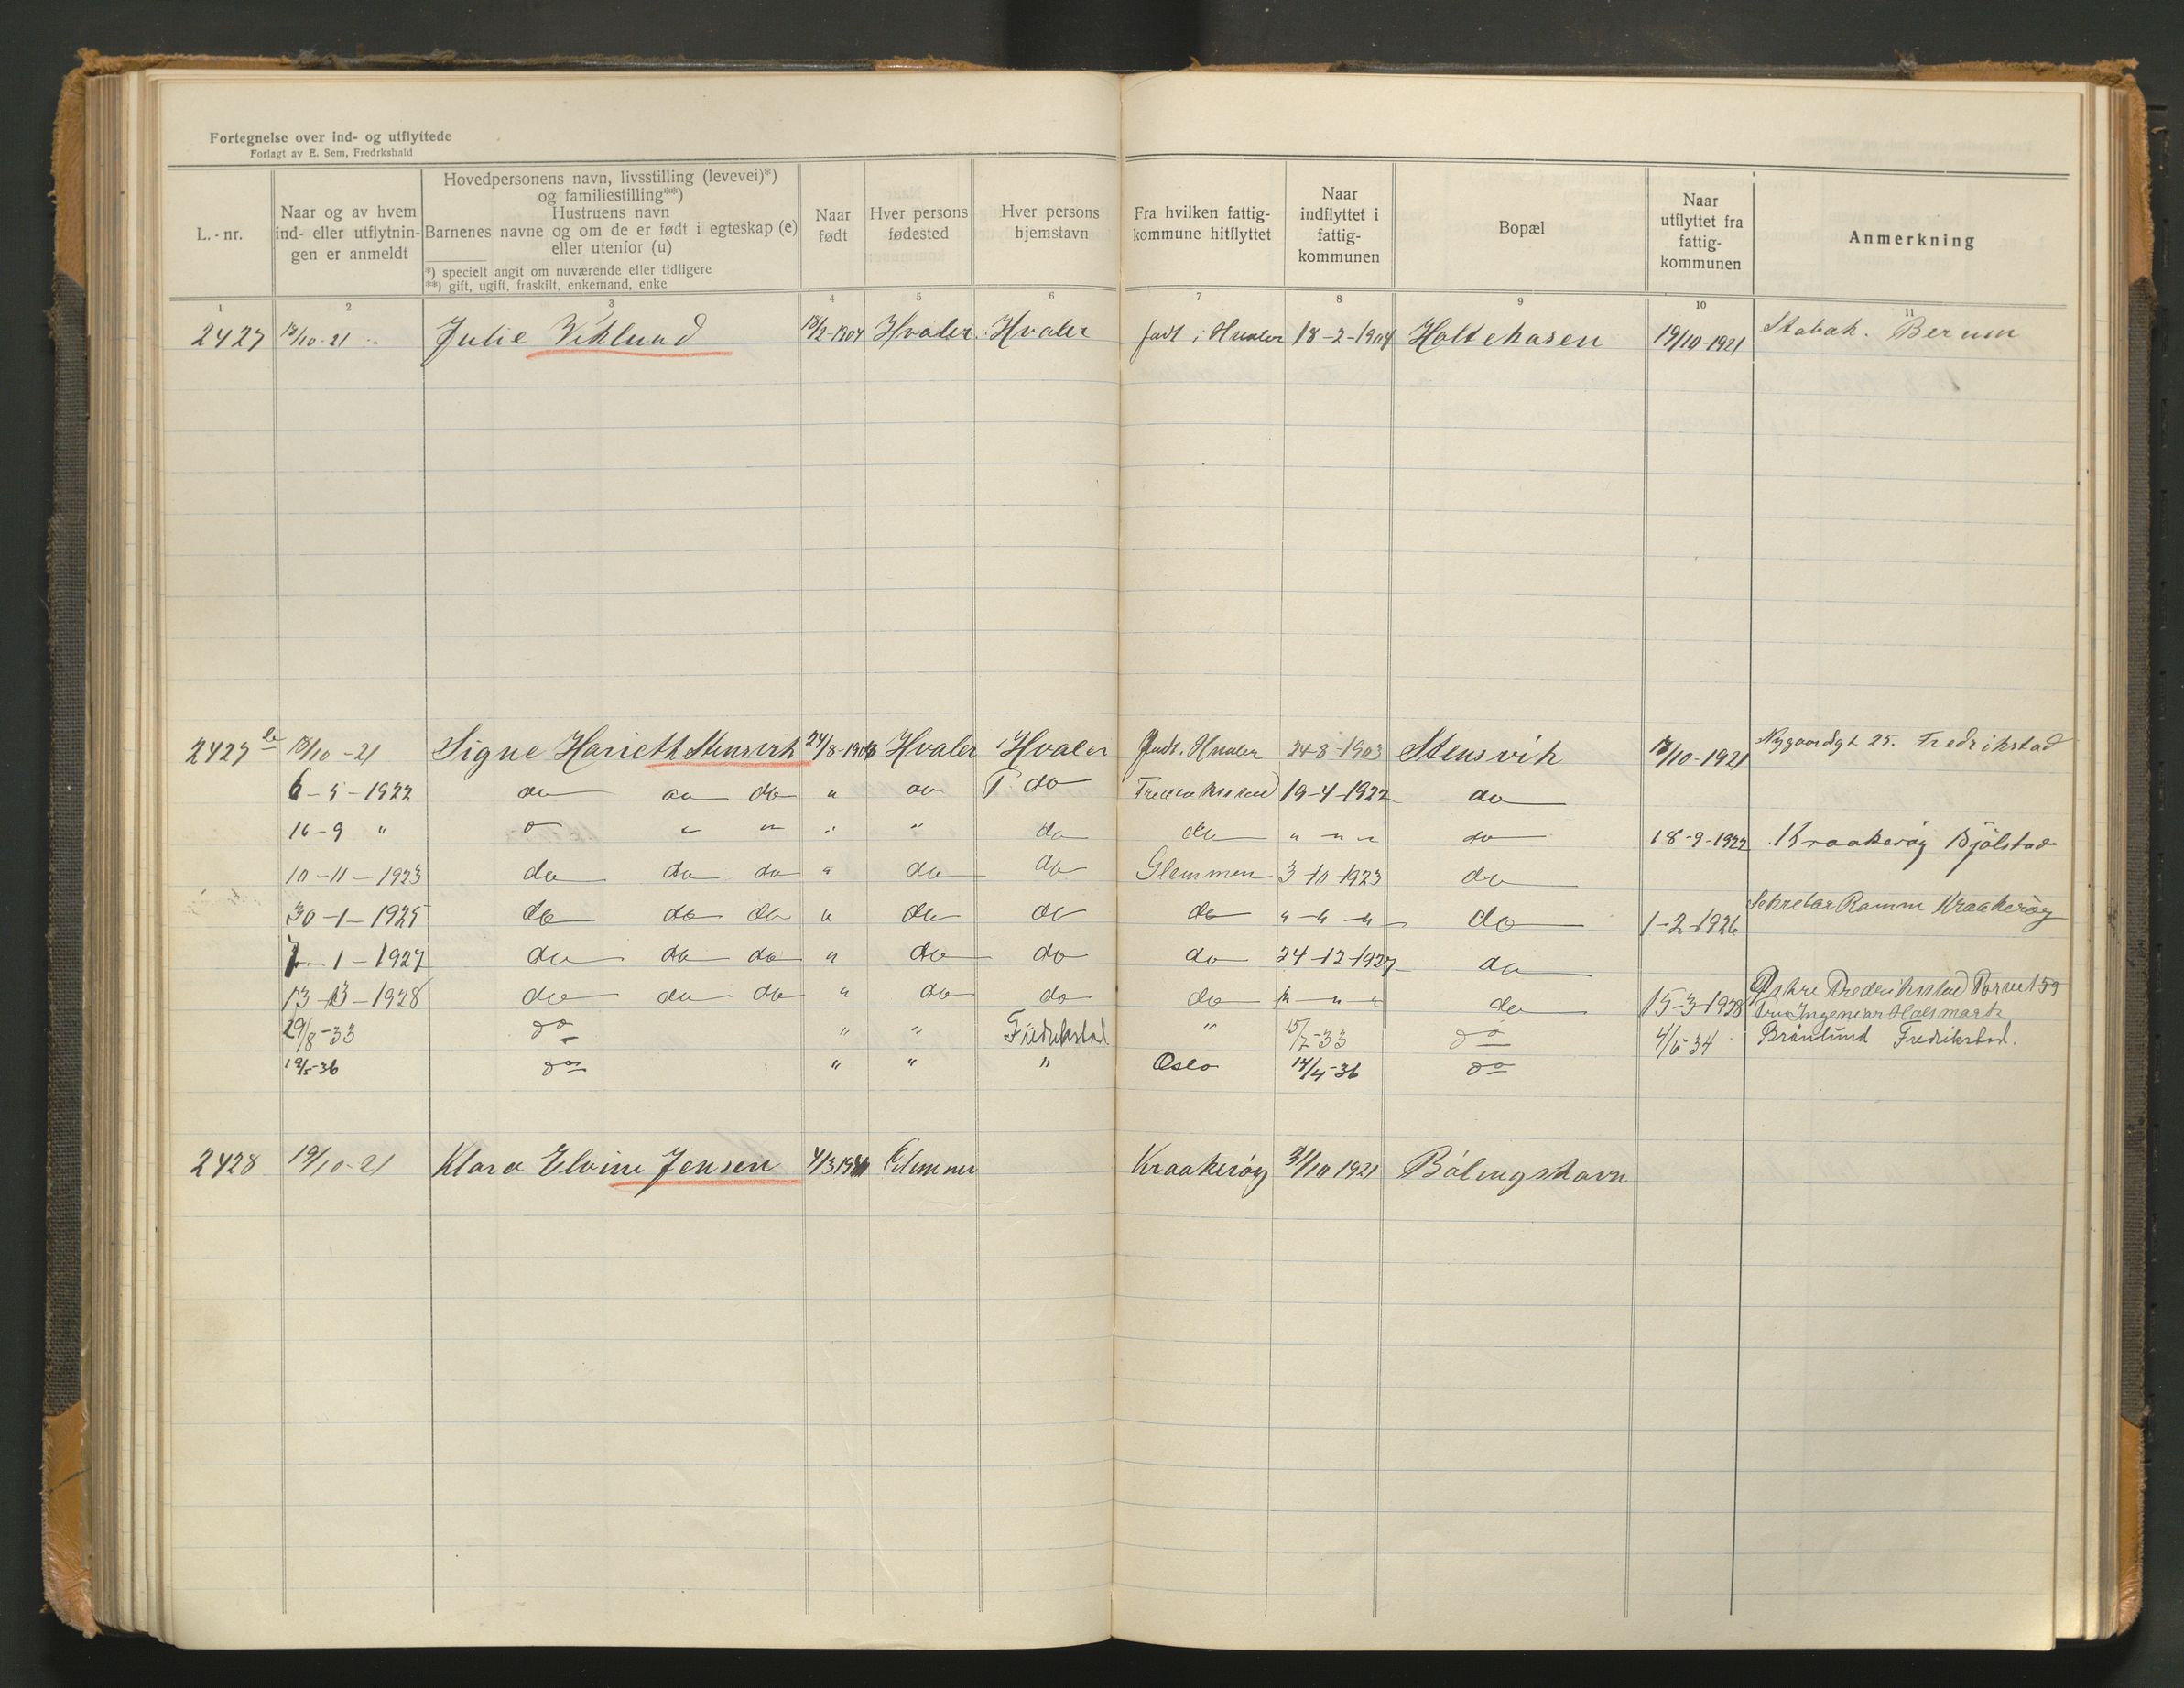 Fortegnelse over ind- og utflyttede
Forlagt av E. Sem, Fredrkshald
L.-nr.
Naar og av hvem ind- eller utflytnin-gen er anmeldt
Hovedpersonens navn, livsstilling (levevei)*)
og familiestilling**)
Hustruens navn
Barnenes navne og om de er født i egteskap (e)
eller utenfor (u)
*) specielt angit om nuværende eller tidligere
**) gift, ugift, fraskilt, enkemand, enke
Naar født
Hver persons fødested
Hver persons hjemstavn
Fra hvilken fattig-kommune hitflyttet
Naar indflyttet i fattig-kommunen
Bopæl
Naar utflyttet fra fattig-kommunen
Anmerkning
1 2 3 4 5 6 7 8 9 10 11
2427 18/10-21 Julie Viklund 18/2-1904 Hvaler Hvaler født i Hvaler 18-2-1904 Holtekasen 19/10-1921 Stabæk. Berum
2427 b 18/10-21 Signe Hariett Stensvik 24/8-1903 Hvaler Hvaler født. Hvaler 24-8-1903 Stensvik 18/10-1921 Nygaardgt 25. Fredrikstad
6-5-1922 do do do " do do Frederikstad 19-4-1922 do
16-9 " " " " " do do " " " do 18-9-1922 Kraakerøy Bjølstad
10-11-1923 do do do " do do Glemmen 3-10-1923 do
30-1-1925 do do do " do do do " " " do 1-2-1926 Sekretær Ramm Kraakerøy
7-1-1927 do do do " do do do 24-12-1927 do
13-3-1928 do do do " do do do " " " do 15-3-1928 Østre Frederikstad Torvet 59
Fru Ingeniør Holsmark
29/8-33 do " " Fredrikstad " 15/7-33 do 4/5-34 Brønlund Fredrikstad.
19/5-36 do " " " Oslo 14/4-36 do
2428 19/10-21 Klara Elvine Jensen 4/3 Glemmen Kraakerøy 31/10 1921 Bølingshavn